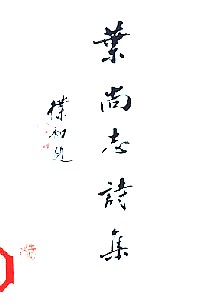 葉尚志詩集
樸初題